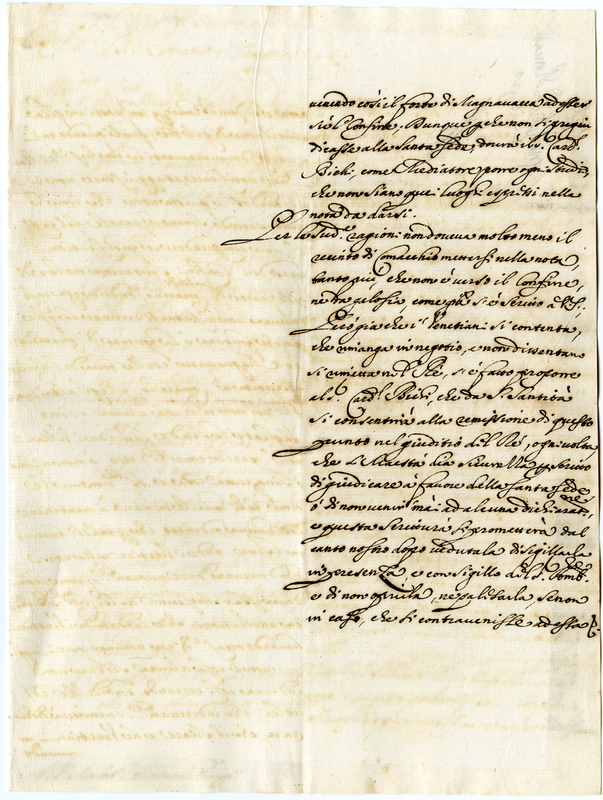 venendo così il forte di Magnavacca ad esser
sì il Confine. Dunque perche non si pregiu
dicasse alla Santa Sede, dovrà il S. Card.
Bichi, come Mediatore, porre ogni studio,
che non siano quei luoghi espressi nella
nota da darsi.
Per le sud.e ragioni non doveva molto meno il
recinto di Comacchio mettersi nella nota,
tanto più, che non è verso il Confine,
ne dà gelosia, come p.a si è scritto a V.S.
Però già che i S. Venetiani si contenta,
che rimanga in negotio, e non dissentano
si rimetta nel Rè, si è fatto proporre
al S. Card.l Bichi, che da S. Santità
si consentirà alla remissione di questo
punto nel giuditio del Rè, ogni volta
che S. Maestà dia sicurtà in scritto
di giudicare à favore della Santa Sede,
ò di non venir mai ad alcuna dichiarat.ne
e questa scrittura si prometterà dal
canto nostro dopo veduta la di sigillarla
in presenza, e con sigillo del S. Amb.re
e di non aprirla, ne palesarla, senon
in caso, che si contravenisse ad essa